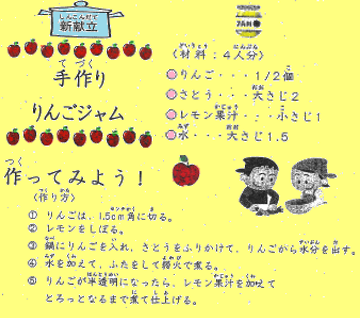 新献立
手作り
りんごジャム
〈材料：4人分〉
りんご・・・1/2個
さとう・・・大さじ2
レモン果汁・・・小さじ1
水・・・大さじ1.5
作ってみよう！
〈作り方〉
① りんごは、1.5cm角に切る。
② レモンをしぼる。
③ 鍋にりんごを入れ、さとうをふりかけて、りんごから水分を出す。
④ 水を加えて、ふたをして弱火で煮る。
⑤ りんごが半透明になったら、レモン果汁を加えて
とろっとなるまで煮て仕上げる。